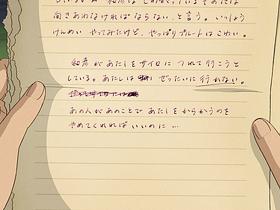 向きあわなければならない、と言う。いっしょう
けんめい やってみたけど、やっぱりプレートは こわい。
和彦が あたしを サイロに つれて 行こうと
している。あたしは ぜったいに 行かない。
あの人が あのことで あたしを からかうのを
やめてくれれば いいのに…